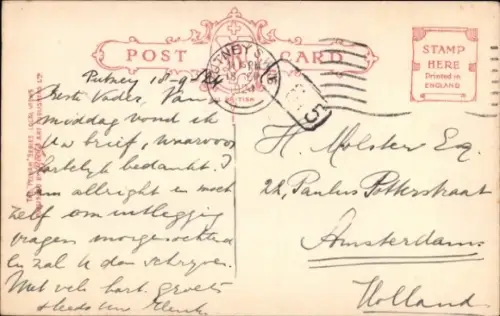 POST CARD
STAMP
HERE
Printed in
ENGLAND
PUTNEY S.W.15
BRITISH
Putney 18-9-24
Beste Vader, Van-
middag vond ik
Uw brief, waarvoor
hartelijk bedankt.
am allright en moet
zelf om uitlegging
vragen morgenochtend
en zal U dan schrijven.
Met vele hart. groeten
steeds Uw Henk
H. Molster Esq.
22, Paulus Potterstraat
Amsterdam
Holland